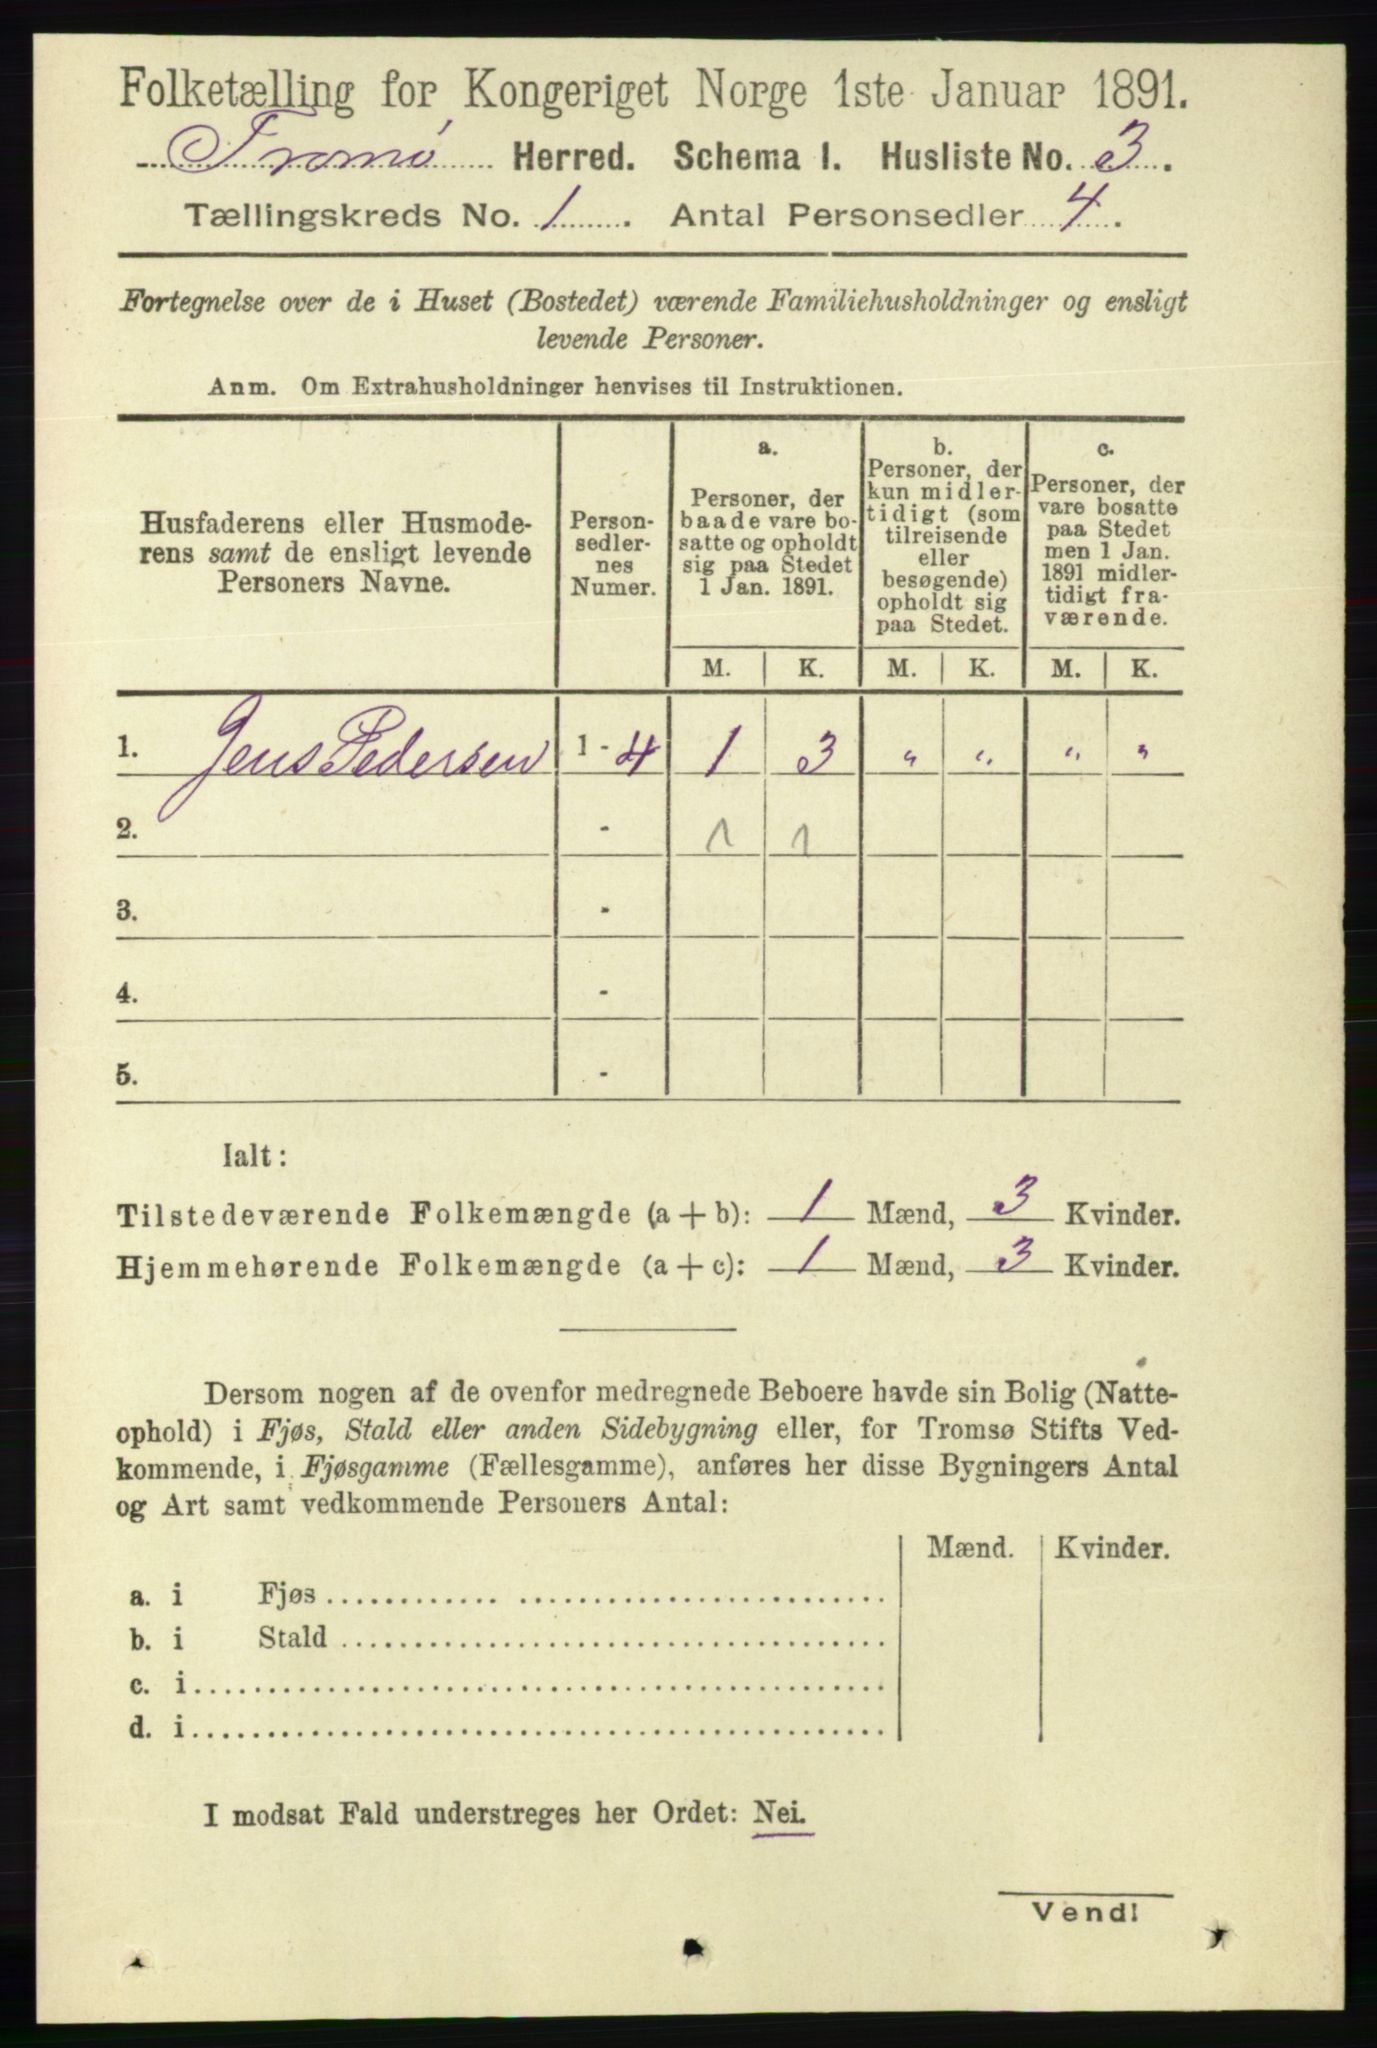 Folketælling for Kongeriget Norge 1ste Januar 1891.
Tromø Herred. Schema I. Husliste No. 3.
Tællingskreds No. 1. Antal Personsedler 4.
Fortegnelse over de i Huset (Bostedet) værende Familiehusholdninger og ensligt
levende Personer.
Anm. Om Extrahusholdninger henvises til Instruktionen.
Husfaderens eller Husmode-
rens samt de ensligt levende
Personers Navne.
Person-
sedler-
nes
Numer.
a.
Personer, der
baade vare bo-
satte og opholdt
sig paa Stedet
1 Jan. 1891.
b.
Personer, der
kun midler-
tidigt (som
tilreisende
eller
besøgende)
opholdt sig
paa Stedet.
c.
Personer, der
vare bosatte
paa Stedet
men 1 Jan.
1891 midler-
tidigt fra-
værende.
M. K. M. K. M. K.
1. Jens Pedersen 1 - 4 1 3 " " " "
2. - 1 1
3. -
4. -
5. -
Ialt:
Tilstedeværende Folkemængde (a + b): 1 Mænd, 3 Kvinder.
Hjemmehørende Folkemængde (a + c): 1 Mænd, 3 Kvinder.
Dersom nogen af de ovenfor medregnede Beboere havde sin Bolig (Natte-
ophold) i Fjøs, Stald eller anden Sidebygning eller, for Tromsø Stifts Ved-
kommende, i Fjøsgamme (Fællesgamme), anføres her disse Bygningers Antal
og Art samt vedkommende Personers Antal:
Mænd. Kvinder.
a. i Fjøs
b. i Stald
c. i
d. i
I modsat Fald understreges her Ordet: Nei.
Vend!